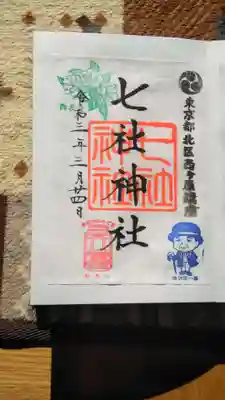 東京都北区西ヶ原鎮座
七社神社
七社
神社
令和二年二月廿四日